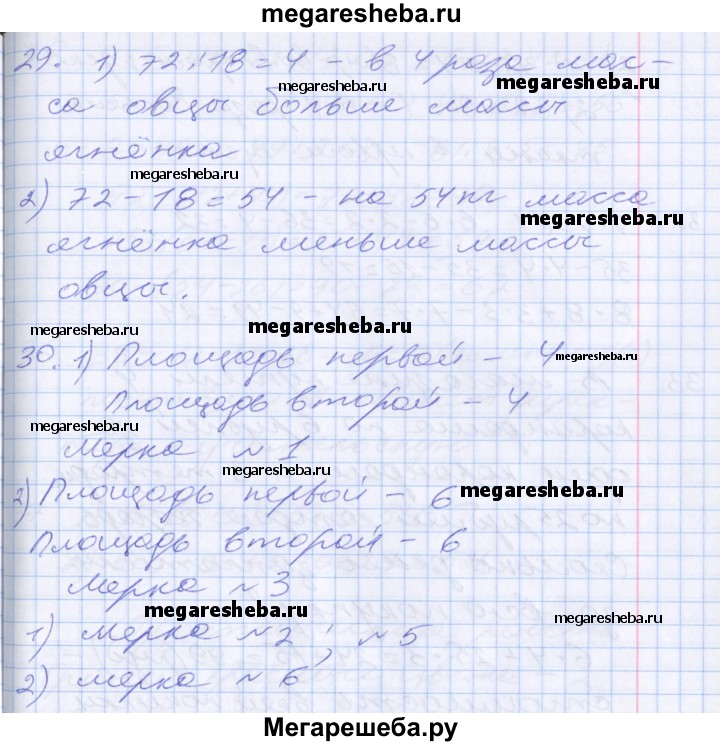 megaresheba.ru
29. 1) 72:18=4 - в 4 раза мас-
megaresheba.ru megaresheba.ru
са овцы больше массы
ягнёнка
megaresheba.ru
2) 72-18=54 - на 54 кг масса
megaresheba.ru
ягнёнка меньше массы
овцы.
megaresheba.ru megaresheba.ru
30. 1) Площадь первой - 4
megaresheba.ru
Площадь второй - 4
megaresheba.ru
Мерка №1
megaresheba.ru
2) Площадь первой - 6
megaresheba.ru
Площадь второй - 6
Мерка №3
megaresheba.ru megaresheba.ru
1) мерка №2, №5
2) мерка №6
megaresheba.ru megaresheba.ru
Мегарешеба.ру